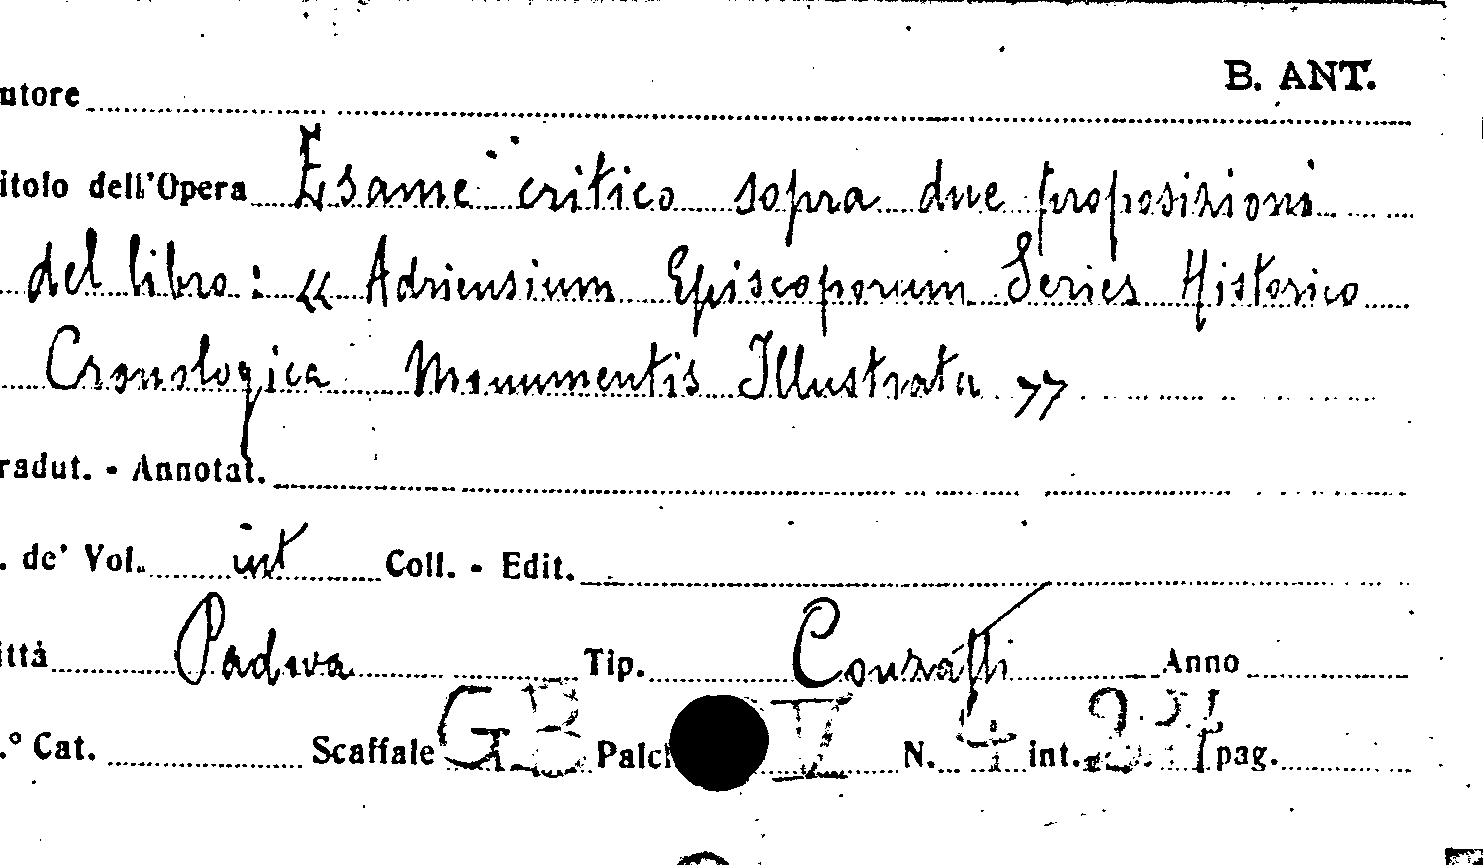 B. ANT.
utore
itolo dell'Opera Esame critico sopra due proposizioni
del libro: « Adriensium Episcoporum Series Historico
Cronologica Monumentis Illustrata »
radut. - Annotat.
. de' Vol. int Coll. - Edit.
ittà Padova Tip. Conzatti Anno
.° Cat. Scaffale GB Palch V N. 4 int. pag.